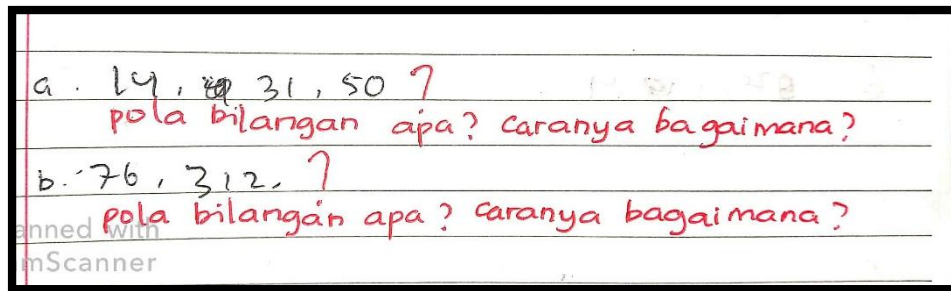 a. 14, 31, 50 ?
pola bilangan apa? caranya bagaimana?
b. 76, 312, ?
pola bilangan apa? caranya bagaimana?
anned with
mScanner